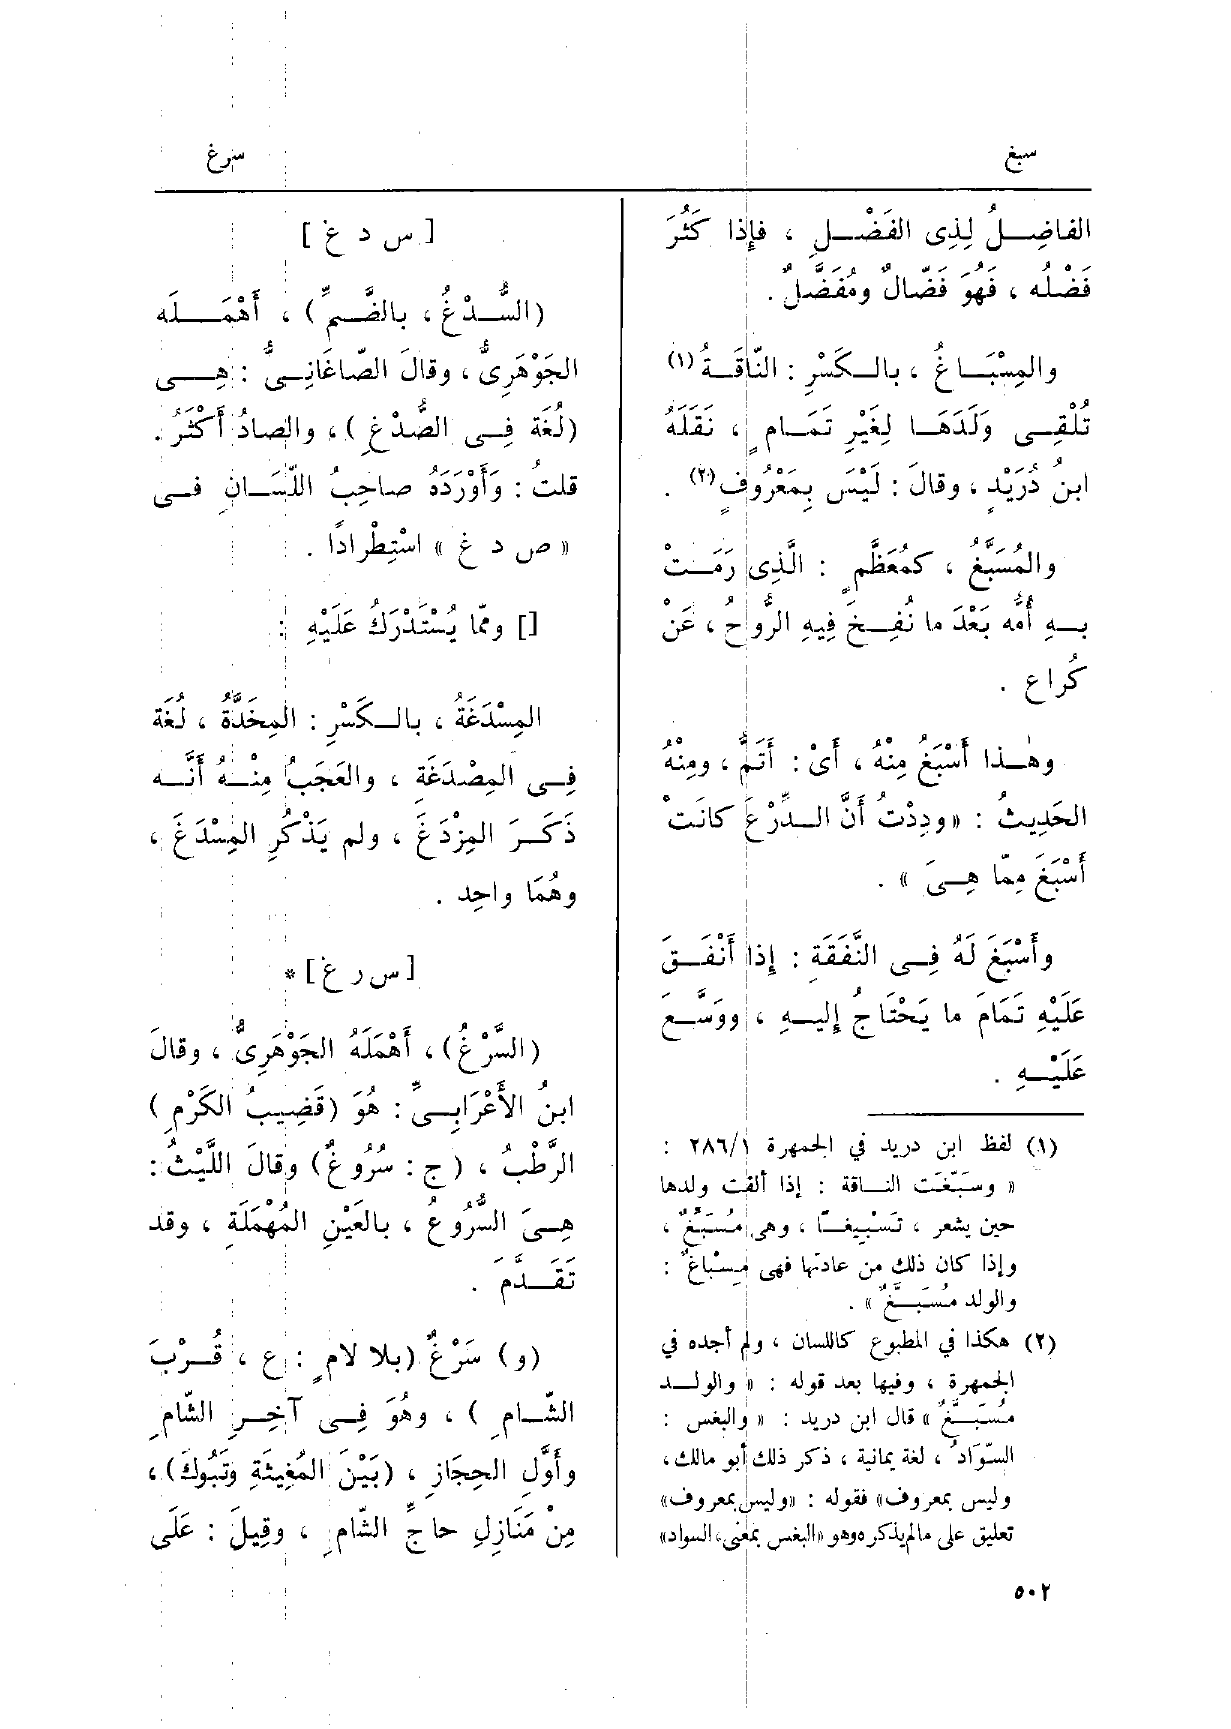 سبغ
سرغ
الفاضِلُ لِذِى الفَضْلِ ، فإِذا كَثُرَ
فَضْلُه ، فَهُوَ فَضّالٌ ومُفَضَّلٌ .
والمِسْبَاغُ ، بالكَسْرِ : النّاقَةُ (١)
تُلْقِى وَلَدَهَا لِغَيْرِ تَمَامٍ ، نَقَلَهُ
ابنُ دُرَيْدٍ ، وقالَ : لَيْسَ بِمَعْرُوفٍ (٢) .
والمُسَبَّغُ ، كمُعَظَّمٍ : الَّذِى رَمَتْ
بِهِ أُمُّه بَعْدَ ما نُفِخَ فِيهِ الرُّوحُ ، عَنْ
كُراع .
وهٰذا أَسْبَغُ مِنْهُ ، أَىْ : أَتَمُّ ، ومِنْهُ
الحَدِيثُ : « ودِدْتُ أَنَّ الدِّرْعَ كانَتْ
أَسْبَغَ مِمّا هِىَ » .
وأَسْبَغَ لَهُ فِى النَّفَقَةِ : إِذا أَنْفَقَ
عَلَيْهِ تَمَامَ ما يَحْتَاجُ إِليهِ ، ووَسَّعَ
عَلَيْهِ .
(١) لفظ ابن دريد في الجمهرة ٢٨٦/١ :
« وسَبَّغَت الناقة : إذا ألقت ولدها
حين يشعر ، تَسْبِيغًا ، وهى مُسَبِّغٌ ،
وإذا كان ذلك من عادتها فهى مِسْباغٌ :
والولد مُسَبَّغٌ » .
(٢) هكذا في المطبوع كاللسان ، ولم أجده في
الجمهرة ، وفيها بعد قوله : « والولد
مُسَبَّغٌ » قال ابن دريد : « والبغس :
السّوَادُ ، لغة يمانية ، ذكر ذلك أبو مالك ،
وليس بمعروف » فقوله : « وليس بمعروف »
تعليق على مالم يذكره وهو « البغس بمعنى السواد »
[ س د غ ]
(السُّدْغُ ، بالضَّمِّ) ، أَهْمَلَه
الجَوْهَرِىُّ ، وقالَ الصّاغَانِىُّ : هِى
(لُغَة فِى الصُّدْغِ ) ، والصادُ أَكْثَرُ .
قلتُ : وَأَوْرَدَهُ صاحِبُ اللّسَانِ فى
« ص د غ » استِطْرادًا .
[] وممّا يُسْتَدْرَكُ عَلَيْهِ :
المِسْدَغَةُ ، بالكَسْرِ : المِخَدَّةُ ، لُغَة
فِى المِصْدَغَةِ ، والعَجَبُ مِنْهُ أَنَّه
ذَكَرَ المِزْدَغَ ، ولم يَذْكُرِ المِسْدَغَ ،
وهُمَا واحِد .
[ س ر غ ] *
(السَّرْغُ) ، أَهْمَلَهُ الجَوْهَرِىُّ ، وقالَ
ابنُ الأَعْرَابِىِّ : هُوَ (قَضِيبُ الكَرْمِ )
الرَّطْبُ ، (ج : سُرُوغٌ) وقالَ اللَّيْثُ :
هِىَ السُّرُوعُ ، بالعَيْنِ المُهْمَلَةِ ، وقد
تَقَدَّمَ .
(و) سَرْغٌ (بلا لامٍ : ع ، قُرْبَ
الشّامِ ) ، وهُوَ فِى آخِرِ الشّامِ
وأَوَّلِ الحِجَازِ ، (بَيْنَ المُغِيثَةِ وتَبُوكَ) ،
مِنْ مَنَازِلِ حاجِّ الشّامِ ، وقِيلَ : عَلَى
٥٠٢